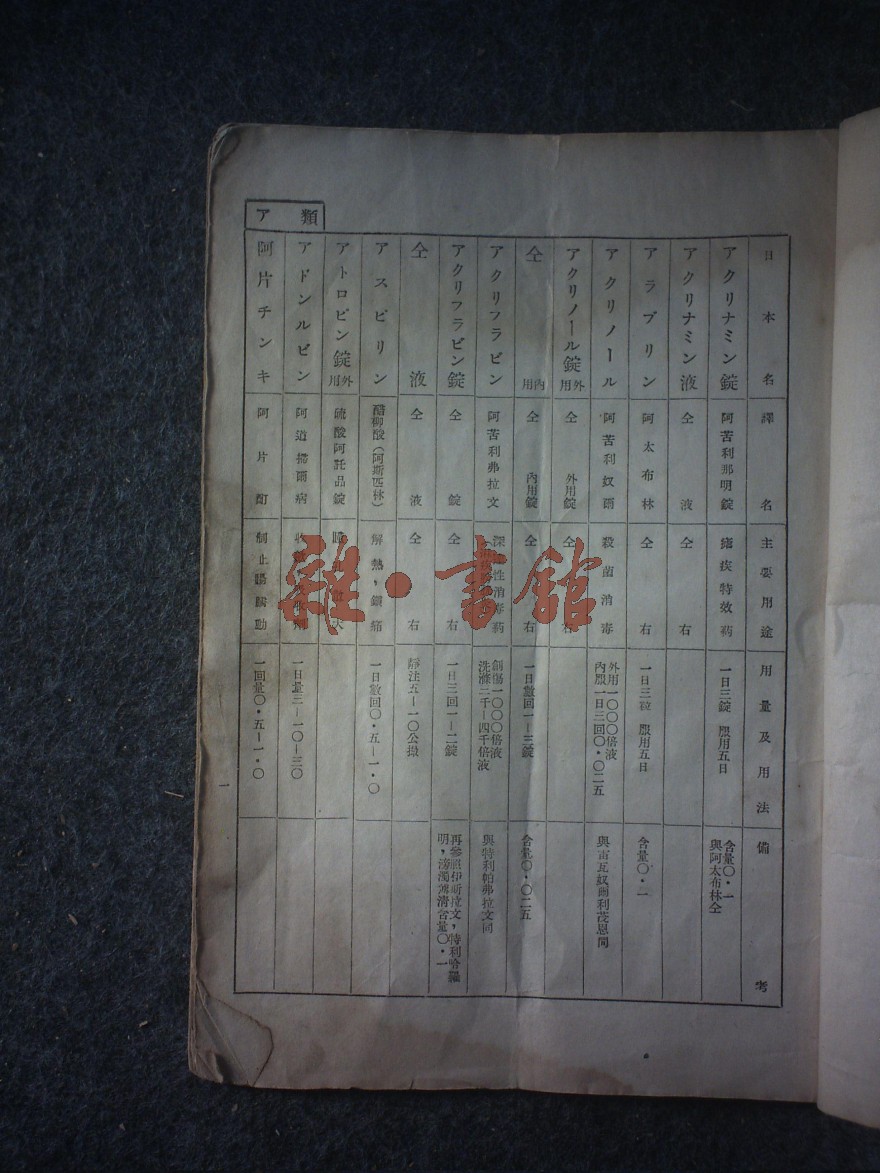 ア類
日本名 譯名 主要用途 用量及用法 備考
アクリナミン錠 阿苦利那明錠 瘧疾特效葯 一日三錠 服用五日 含量〇・一 與阿太布林仝
アクリナミン液 仝液 仝右
アラブリン 阿太布林 仝右 一日三粒 服用五日 含量〇・一
アクリノール 阿苦利奴爾 殺菌消毒 外用一〇〇〇倍液 內服一日三回〇・〇二五
アクリノール錠外用 仝外用錠 仝右
仝內用 仝內用錠 仝右 一日數回一—三錠 含量〇・〇二五
アクリフラビン 阿苦利弗拉文 創傷一〇〇〇倍液 洗滌二千—四千倍液 與特利帕弗拉文同
アクリフラビン錠 仝錠 仝右 一日三回一—二錠
仝液 仝液 仝右 靜注五—一〇公撮
アスピリン 醋柳酸(阿斯匹林) 解熱,鎮痛 一日數回〇・五—一・〇
アトロピン錠外用 硫酸阿託品錠
アドンルビン 一日量三—一〇—三〇
阿片チンキ 阿片酊 制止腸蠕動 一回量〇・五—一・〇
一
雜・書館